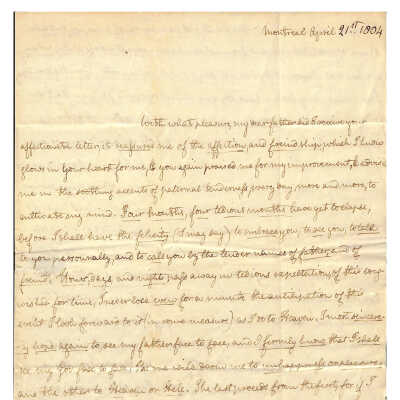 Montreal April 21st 1804
With what pleasure, my dear father did I receive your
affectionate letter, it reassured me of the affection, and friendship which I know
glows in your heart for me, & you again press me for my improvement, & advise
me in the soothing accents of paternal tenderness, every day more and more, to
cultivate my mind. Four months, four tedious months have yet to elapse,
before I shall have the felicity (I may say) to embrace you, to see you, to talk
to you personally, and to call you by the tender names of father, and of
friend. Hours, days and nights pass away in tedious expectation of this long
wished for time, I never lose even for a minute the anticipation of this
event I look forward to it (in some measure) as I do to Heaven. I most sincere-
ly hope again to see my father face to face, and I firmly know that I shall
see my God face to face, the one will show me to
and the other to Heaven or Hell. The last proceeds from the first, for if I